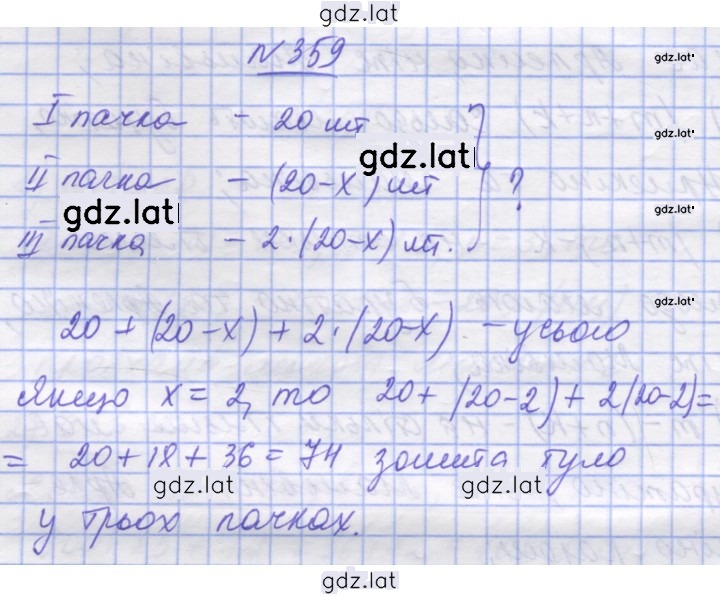 gdz.lat
№ 359
gdz.lat
I пачка - 20 шт
gdz.lat
gdz.lat
II пачка - (20-x) шт } ?
gdz.lat
gdz.lat
III пачка - 2·(20-x) шт.
gdz.lat
20 + (20-x) + 2·(20-x) - усього
gdz.lat
Якщо x = 2, то 20 + (20-2) + 2(20-2) =
= 20 + 18 + 36 = 74 зошита було
gdz.lat gdz.lat
у трьох пачках.
gdz.lat